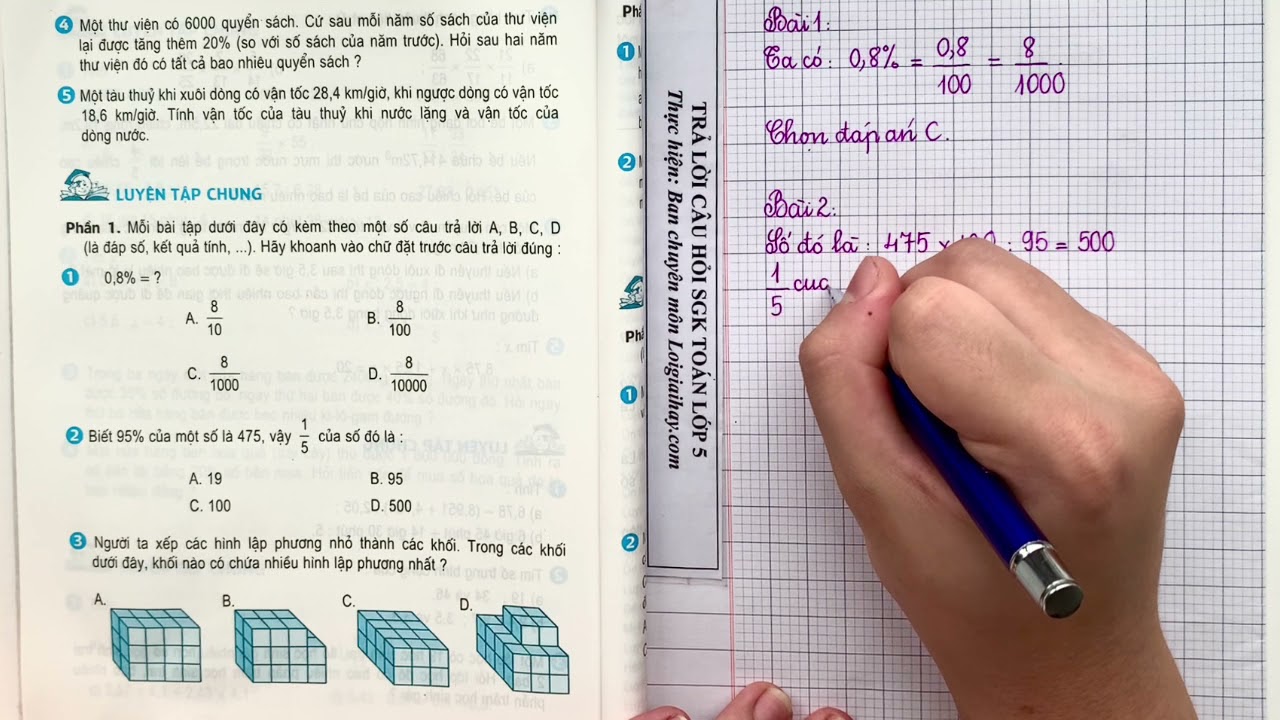 4 Một thư viện có 6000 quyển sách. Cứ sau mỗi năm số sách của thư viện
lại được tăng thêm 20% (so với số sách của năm trước). Hỏi sau hai năm
thư viện đó có tất cả bao nhiêu quyển sách ?
5 Một tàu thuỷ khi xuôi dòng có vận tốc 28,4 km/giờ, khi ngược dòng có vận tốc
18,6 km/giờ. Tính vận tốc của tàu thuỷ khi nước lặng và vận tốc của
dòng nước.
LUYỆN TẬP CHUNG
Phần 1. Mỗi bài tập dưới đây có kèm theo một số câu trả lời A, B, C, D
(là đáp số, kết quả tính, ...). Hãy khoanh vào chữ đặt trước câu trả lời đúng :
1 0,8% = ?
A. 8/10 B. 8/100
C. 8/1000 D. 8/10000
2 Biết 95% của một số là 475, vậy 1/5 của số đó là :
A. 19 B. 95
C. 100 D. 500
3 Người ta xếp các hình lập phương nhỏ thành các khối. Trong các khối
dưới đây, khối nào có chứa nhiều hình lập phương nhất ?
A. B. C. D.
Phầ
1
2
1
2
TRẢ LỜI CÂU HỎI SGK TOÁN LỚP 5
Thực hiện: Ban chuyên môn Loigiaihay.com
Bài 1:
Ta có: 0,8% = 0,8/100 = 8/1000
Chọn đáp án C.
Bài 2:
Số đó là: 475 × : 95 = 500
1/5 cuc